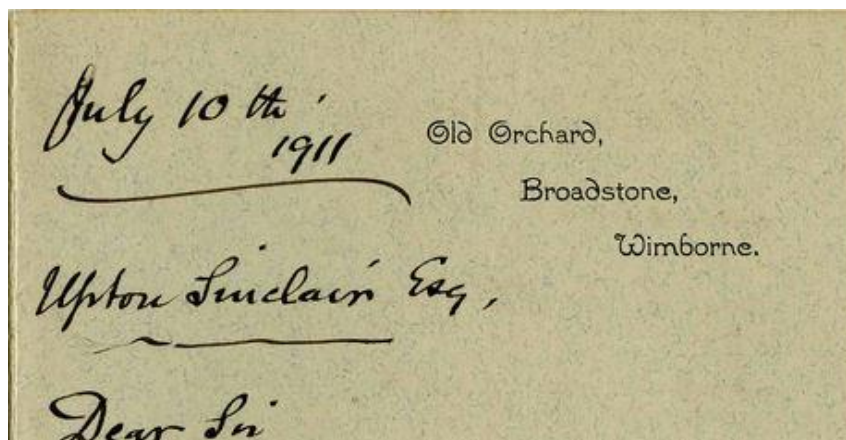 July 10th.
1911
Old Orchard,
Broadstone,
Wimborne.
Upton Sinclair Esq,
Dear Sir